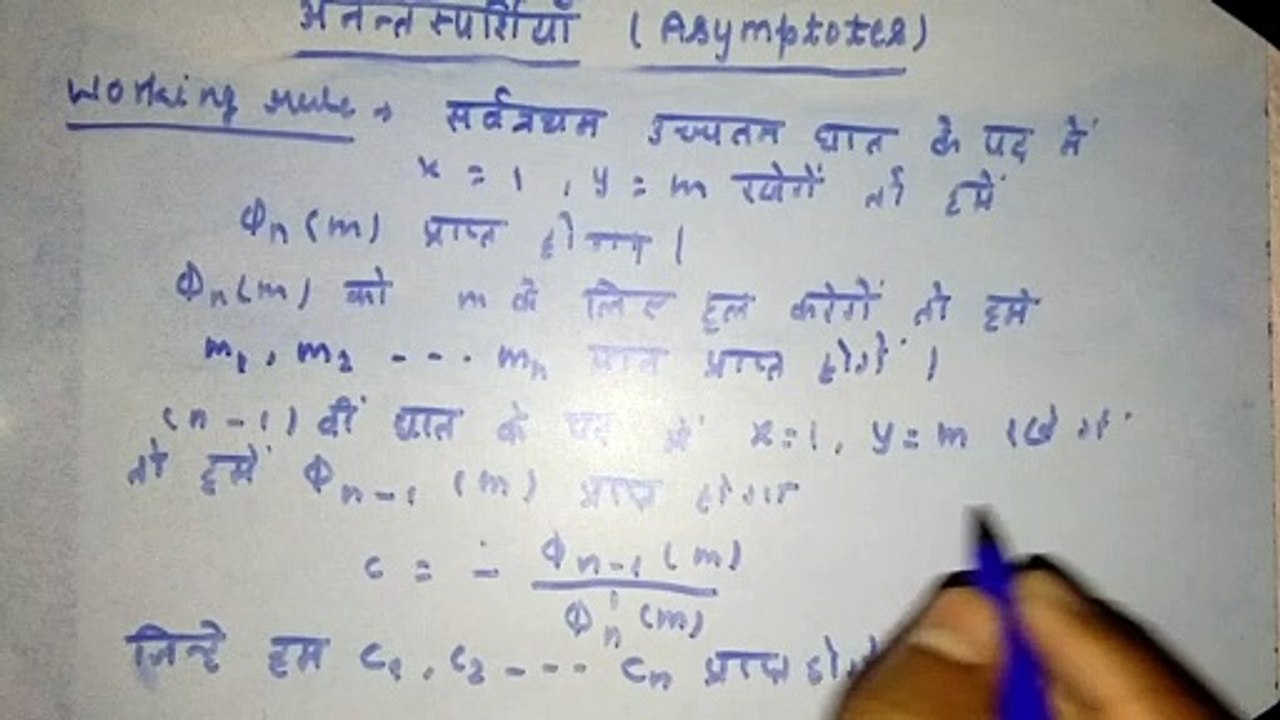 अनन्तस्पर्शियाँ (Asymptotes)
Working rule → सर्वप्रथम उच्चतम घात के पद में
x = 1 , y = m रखेगें तो हमें
Φn (m) प्राप्त होगा ।
Φn(m) को m के लिए हल करेगें तो हमें
m1, m2 - - - mn मान प्राप्त होगें ।
(n-1) वीं घात के पद में x=1, y=m रखेगें
तो हमें Φn-1 (m) प्राप्त होगा
c = - Φn-1 (m) / Φ'n (m)
जिन्हे हम c1, c2 - - - cn प्राप्त